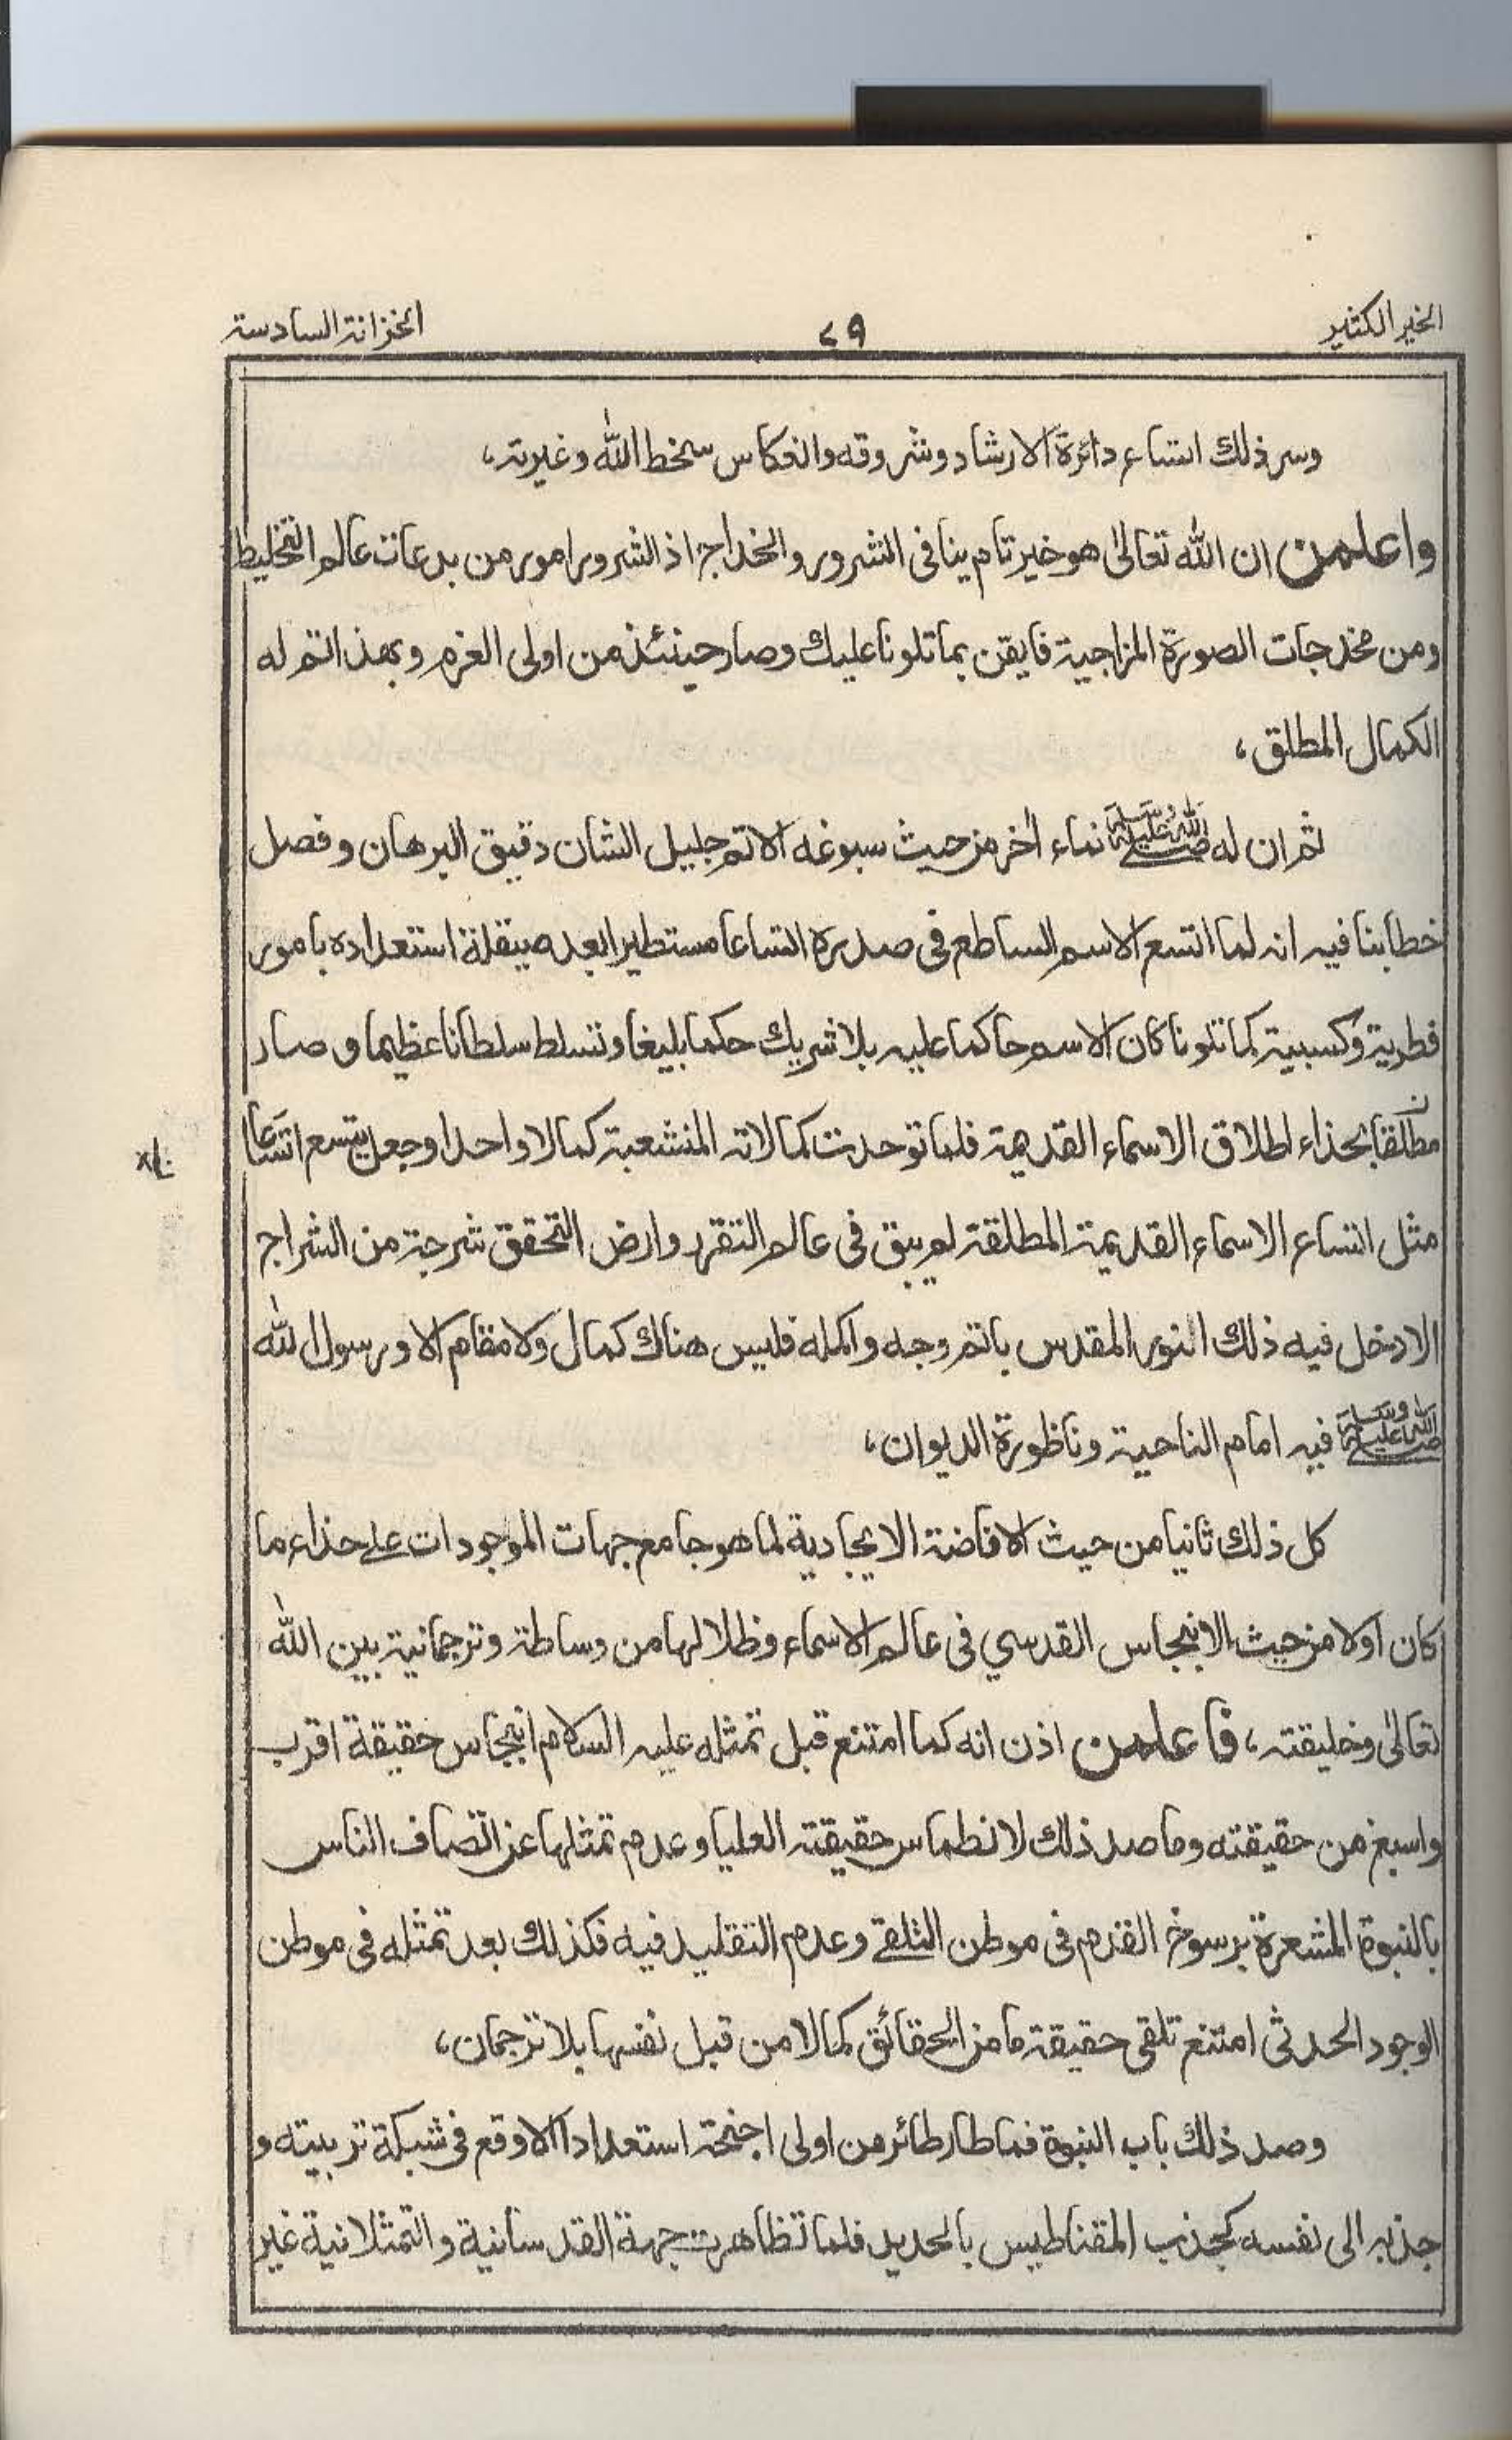 الخير الكثير
٧٩
الخزانة السادسة
وسر ذلك اتساع دائرة الارشاد وشروقه وانعكاس سخط الله وغيرته،
واعلمن ان الله تعالىٰ هو خير تام ينافى الشرور والخداج اذ الشرور امور من بدعات عالم التخليط
ومن مخدجات الصورة المزاجية فايقن بما تلونا عليك وصار حينئذ من اولى العزم وبهذا تم له
الكمال المطلق،
ثم ان له ﷺ نماء اٰخر من حيث سبوغه الاتم جليل الشان دقيق البرهان وفصل
خطابنا فيه انه لما اتسع الاسم الساطع فى صدره اتساعا مستطيرا بعد صيقلة استعداده بامور
فطرية وكسبية كما تلونا كان الاسم حاكما عليه بلا شريك حكما بليغا وتسلط سلطانا عظيما وصار
مطلقا بحذاء اطلاق الاسماء القديمة فلما توحدت كمالاته المنشعبة كمالا واحدا وجعل يتسع اتساعا
مثل اتساع الاسماء القديمة المطلقة لم يبق فى عالم التقرر وارض التحقق شرجة من الشراج
الا دخل فيه ذلك النور المقدس باتم وجه واكمله فليس هناك كمال ولا مقام الا ورسول الله
ﷺ فيه امام الناحية وناظورة الديوان،
كل ذلك ثانيا من حيث الافاضة الايجادية لما هو جامع جهات الموجودات على حذاء ما
كان اولا من حيث الانبجاس القدسي فى عالم الاسماء وظلالها من وساطة وترجمانية بين الله
تعالىٰ وخليقته، فاعلمن اذن انه كما امتنع قبل تمثله عليه السلام انبجاس حقيقة اقرب
واسبغ من حقيقته وما صد ذلك لانطماس حقيقته العليا وعدم تمثلها عن اتصاف الناس
بالنبوة المشعرة برسوخ القدم فى موطن التلقے وعدم التقليد فيه فكذلك بعد تمثله فى موطن
الوجود الحدثى امتنع تلقى حقيقة ما من الحقائق كمالا من قبل نفسها بلا ترجمان،
وصد ذلك باب النبوة فما طار طائر من اولى اجنحة استعدادا الا وقع فى شبكة تربيته و
جذبه الى نفسه كجذب المقناطيس بالحديد فلما تظاهرت جهة القدسانية والتمثلانية غير